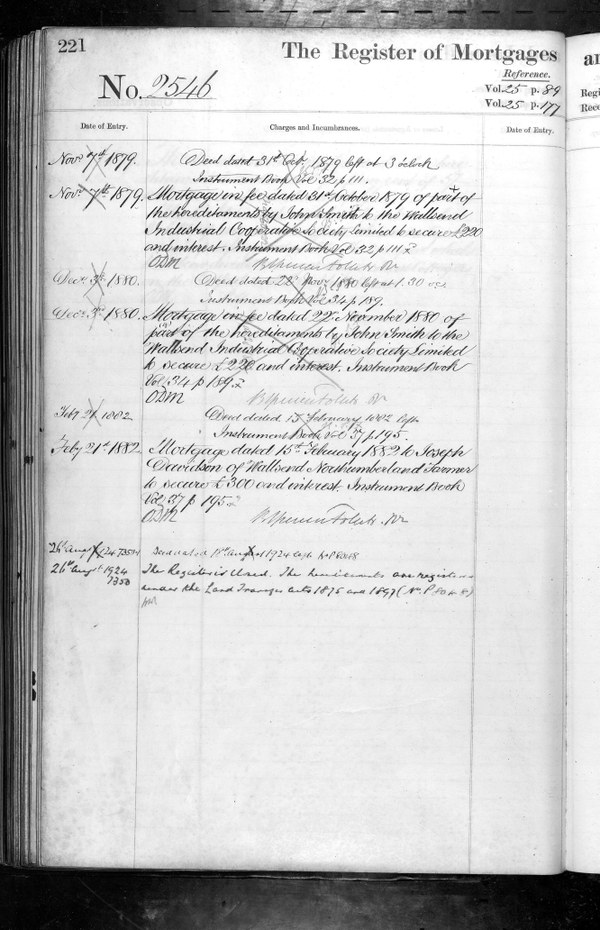 221
The Register of Mortgages
Reference.
No. 2546
Vol. 25 p. 89
Vol. 25 p. 177
Date of Entry.
Charges and Incumbrances.
Date of Entry.
Novr 7th 1879.
Deed dated 31st Oct. 1879 left at 3 o'clock
Instrument Book Vol 32 p 111.
Novr 7th 1879.
Mortgage in fee dated 31st October 1879 of part of
the hereditaments by John Smith to the Wallsend
Industrial Cooperative Society Limited to secure £220
and interest. Instrument Book Vol 32 p 111
ODM
Decr 3rd 1880.
Deed dated 22 Novr 1880 left at 1.30
Instrument Book Vol 34 p 189.
Decr 3rd 1880.
Mortgage in fee dated 22nd November 1880 of
part of the hereditaments by John Smith to the
Wallsend Industrial Cooperative Society Limited
to secure £220 and interest. Instrument Book
Vol 34 p 189
ODM
Feby 21 1882
Deed dated 15 February 1882 left
Instrument Book Vol 37 p 195.
Feby 21st 1882.
Mortgage dated 15th February 1882 to Joseph
Davidson of Wallsend Northumberland Farmer
to secure £300 and interest. Instrument Book
Vol 37 p 195
ODM
26th Aug 1924
Deed dated August 1924
26th Augst 1924
The Register is closed. The hereditaments are registered
under the Land Transfer Acts 1875 and 1897